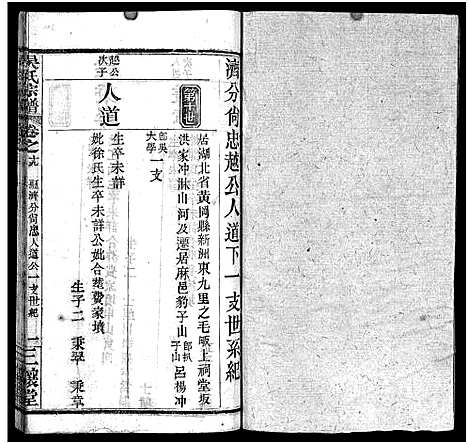 濟分尙忠越公人道下一支世系紀
居湖北省黃岡縣新洲東九里之毛畈上祠堂坂
洪家冲淋山河及遷居麻邑豹子山 卽扒子山 呂楊冲
卽吳大學一支
越公次子
人道
生卒未詳
妣徐氏生卒未詳公妣合塟費家墳
生子二 秉翠 秉章
吳氏宗譜
卷之
濟分尙忠人道公一支世紀
三讓堂